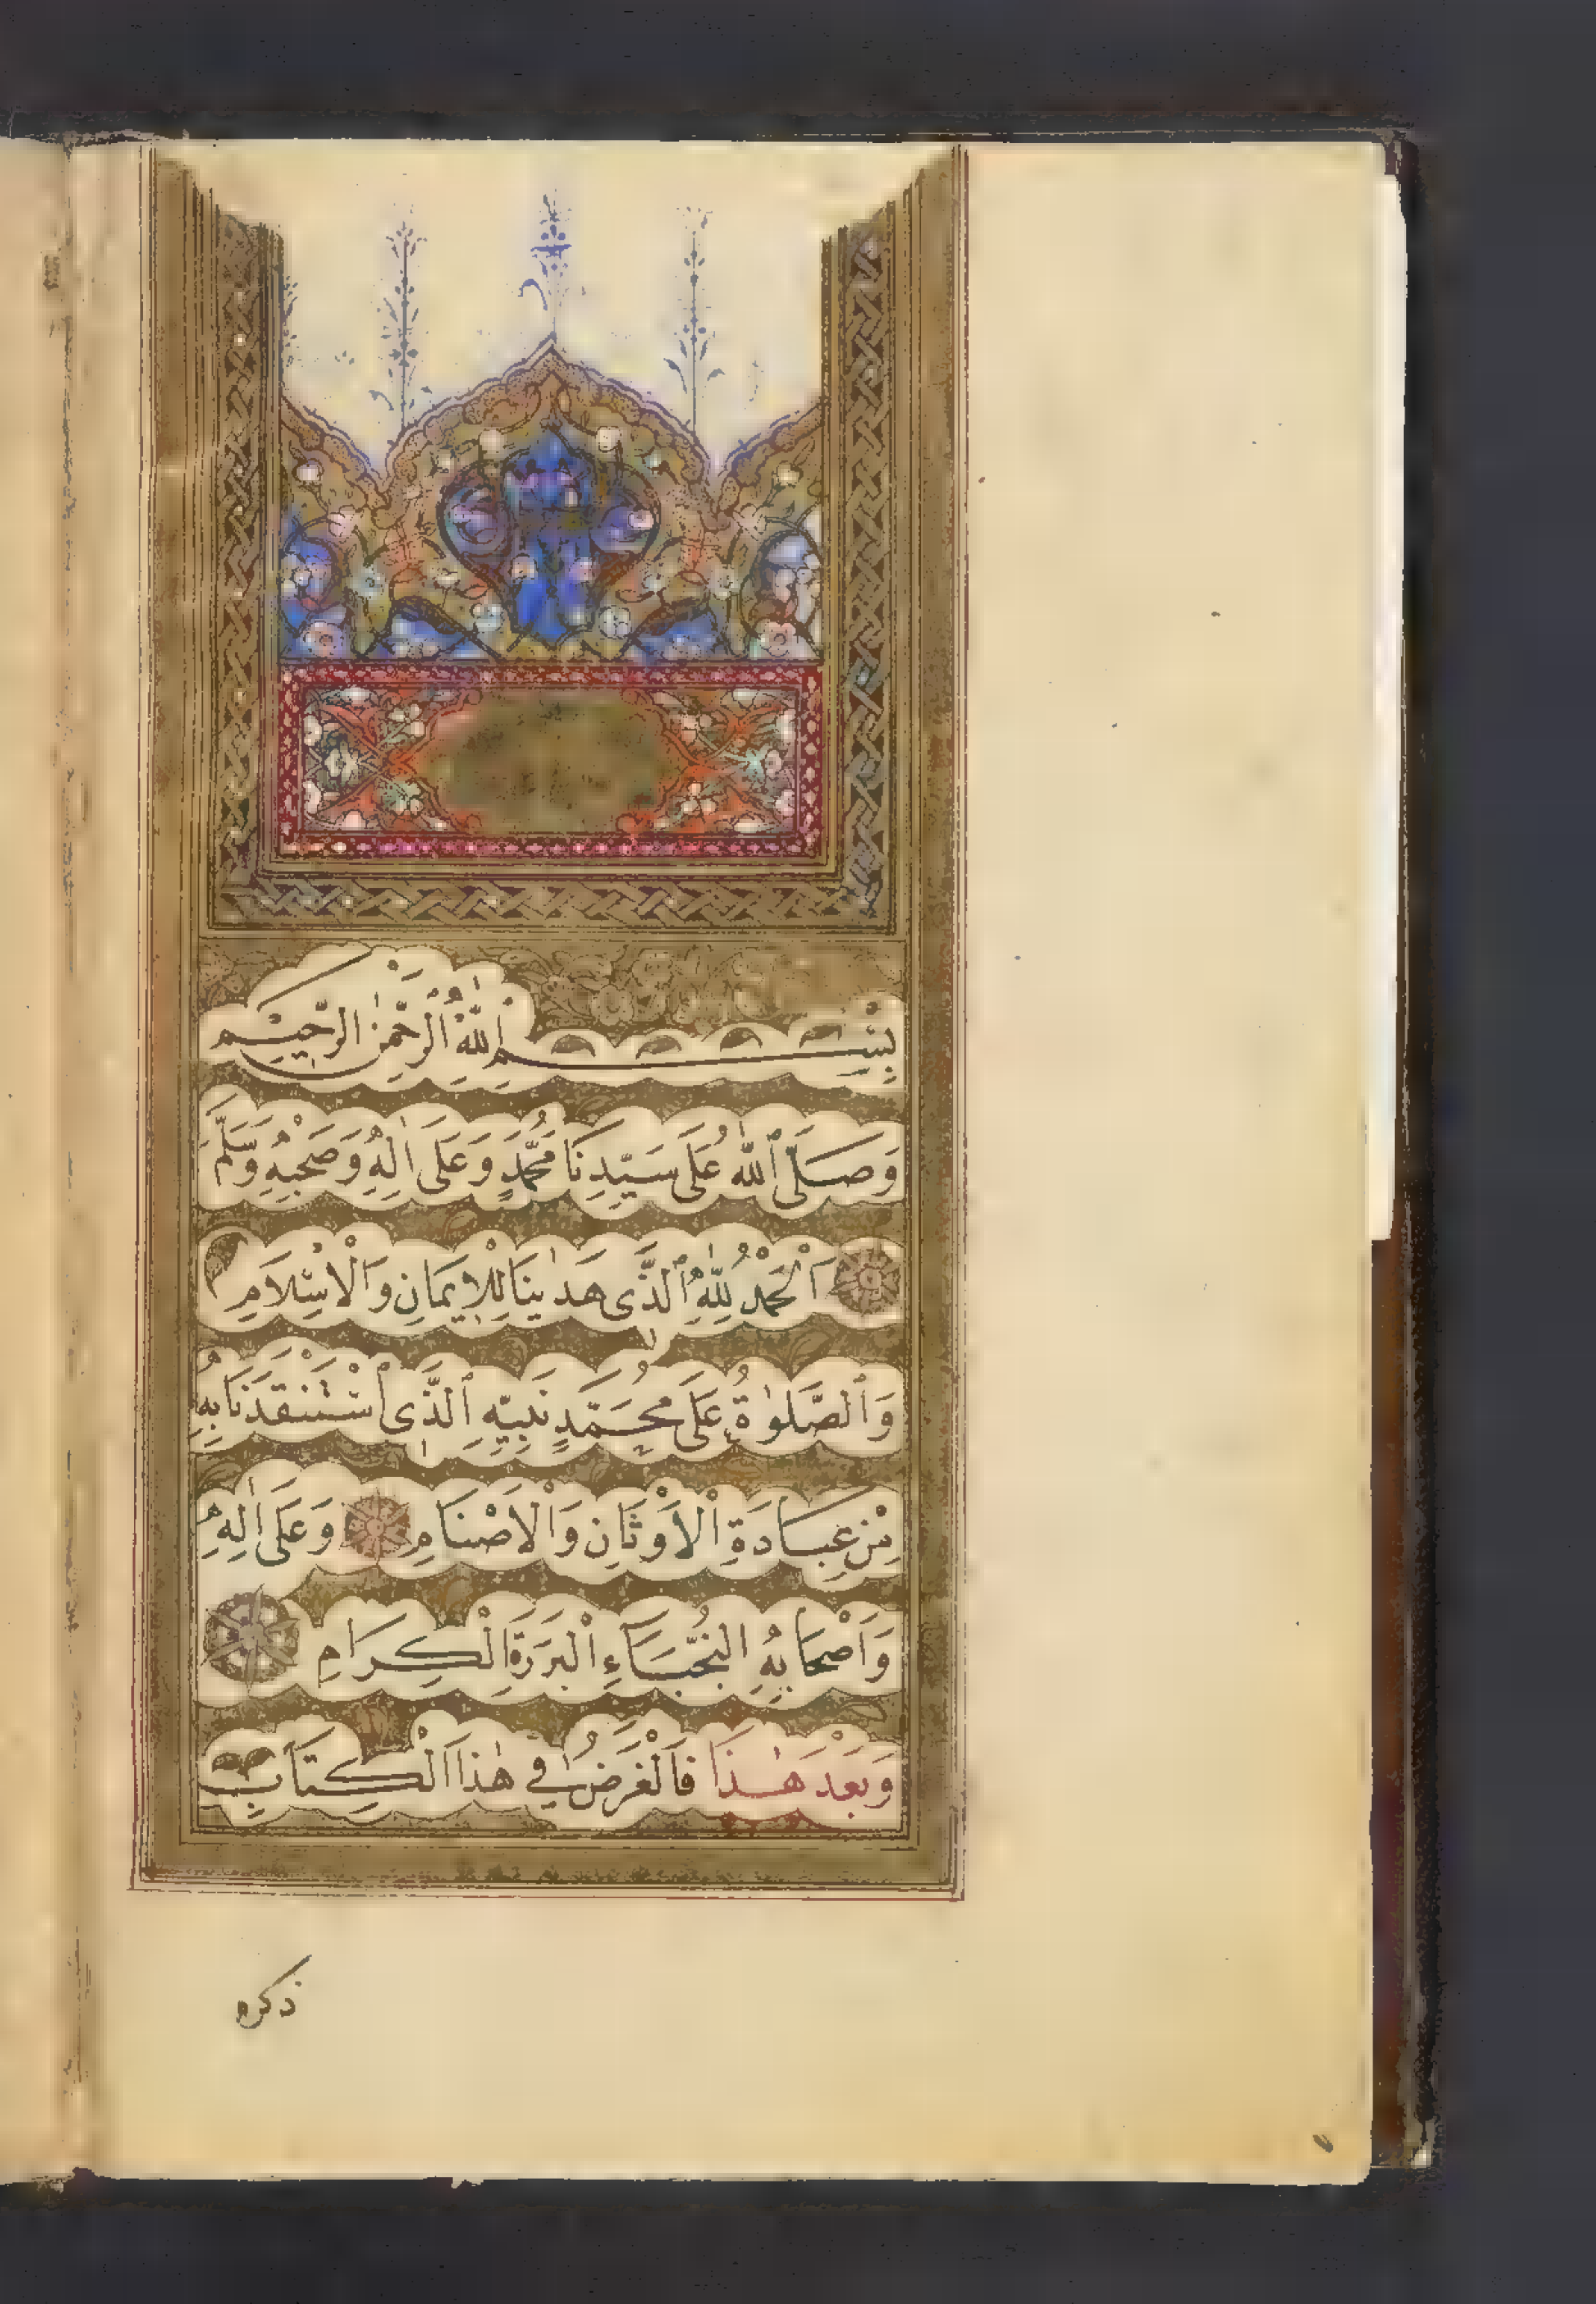 بِسْمِ اللّٰهِ الرَّحْمٰنِ الرَّحِيْمِ
وَصَلَّى اللّٰهُ عَلَى سَيِّدِنَا مُحَمَّدٍ وَعَلَى اٰلِهِ وَصَحْبِهِ وَسَلَّمَ
اَلْحَمْدُ لِلّٰهِ الَّذِى هَدٰينَا لِلْاِيمَانِ وَالْاِسْلَامِ
وَالصَّلٰوةُ عَلَى مُحَمَّدٍ نَبِيِّهِ الَّذِى اسْتَنْقَذَنَا بِهِ
مِنْ عِبَادَةِ الْاَوْثَانِ وَالْاَصْنَامِ وَعَلَى اٰلِهِ
وَاَصْحَابِهِ النُّجَبَاءِ الْبَرَرَةِ الْكِرَامِ
وَبَعْدَ هٰذَا فَالْغَرَضُ فِى هٰذَا الْكِتَابِ
ذكره